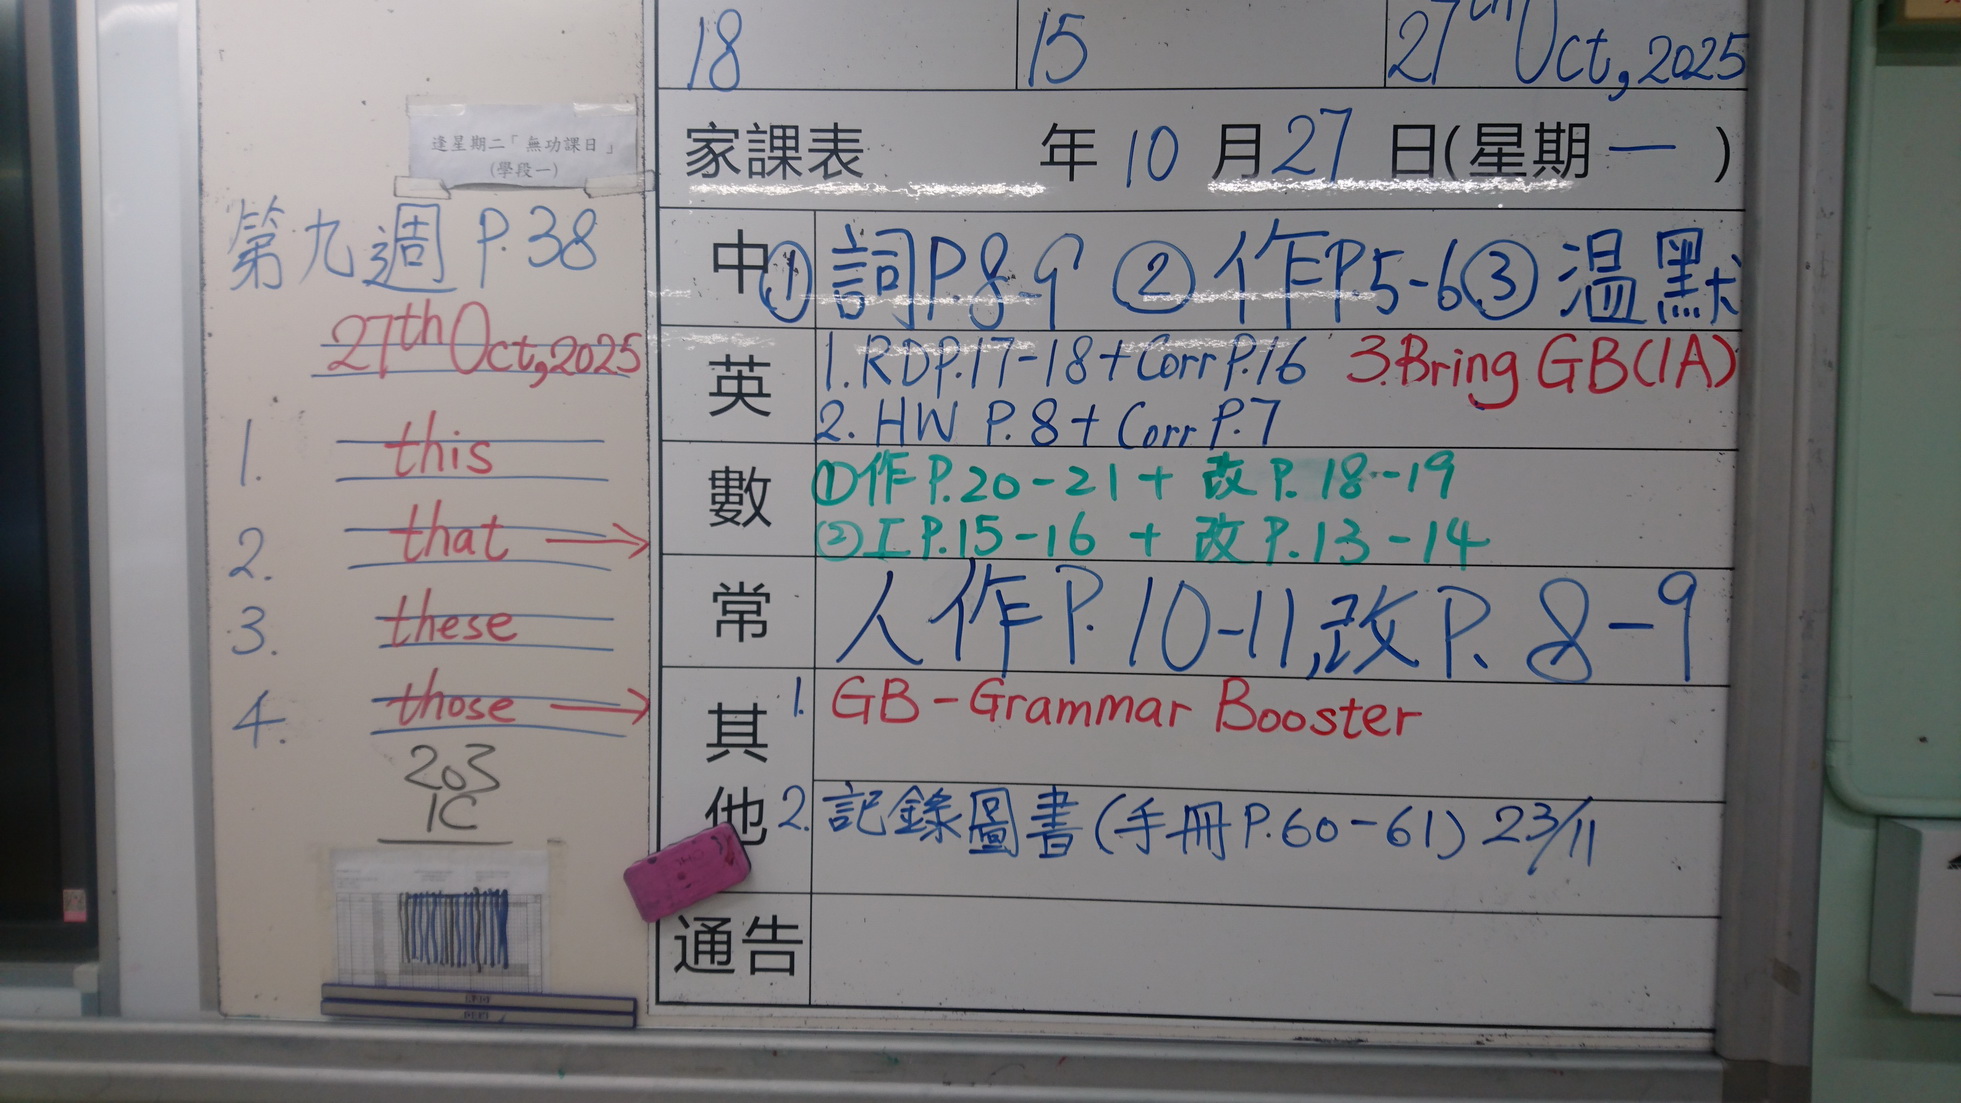 逢星期二「無功課日」
(學段一)
第九週 P.38
27th Oct, 2025
1. this
2. that →
3. these
4. those →
203
1C
18 15 27th Oct, 2025
家課表 年 10 月 27 日(星期一)
中 ① 詞P.8-9 ② 作P.5-6 ③ 溫默
英 1. RD P.17-18 + Corr P.16 3. Bring GB(1A)
2. HW P.8 + Corr P.7
數 ①作P.20-21 + 改P.18-19
②工P.15-16 + 改P.13-14
常 人作P.10-11,改P.8-9
其他 1. GB - Grammar Booster
2. 記錄圖書(手冊P.60-61) 23/11
通告